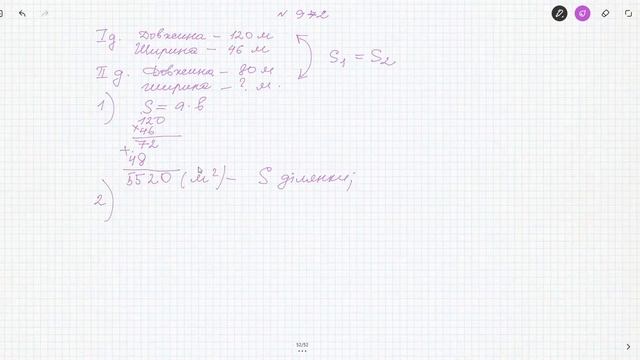 N 972
I д. Довжина - 120 м
Ширина - 46 м
S₁ = S₂
II д. Довжина - 80 м
Ширина - ? м.
1) S = a · b
120
×46
72
+
48
5520 (м²) - S ділянки;
2)
52/52